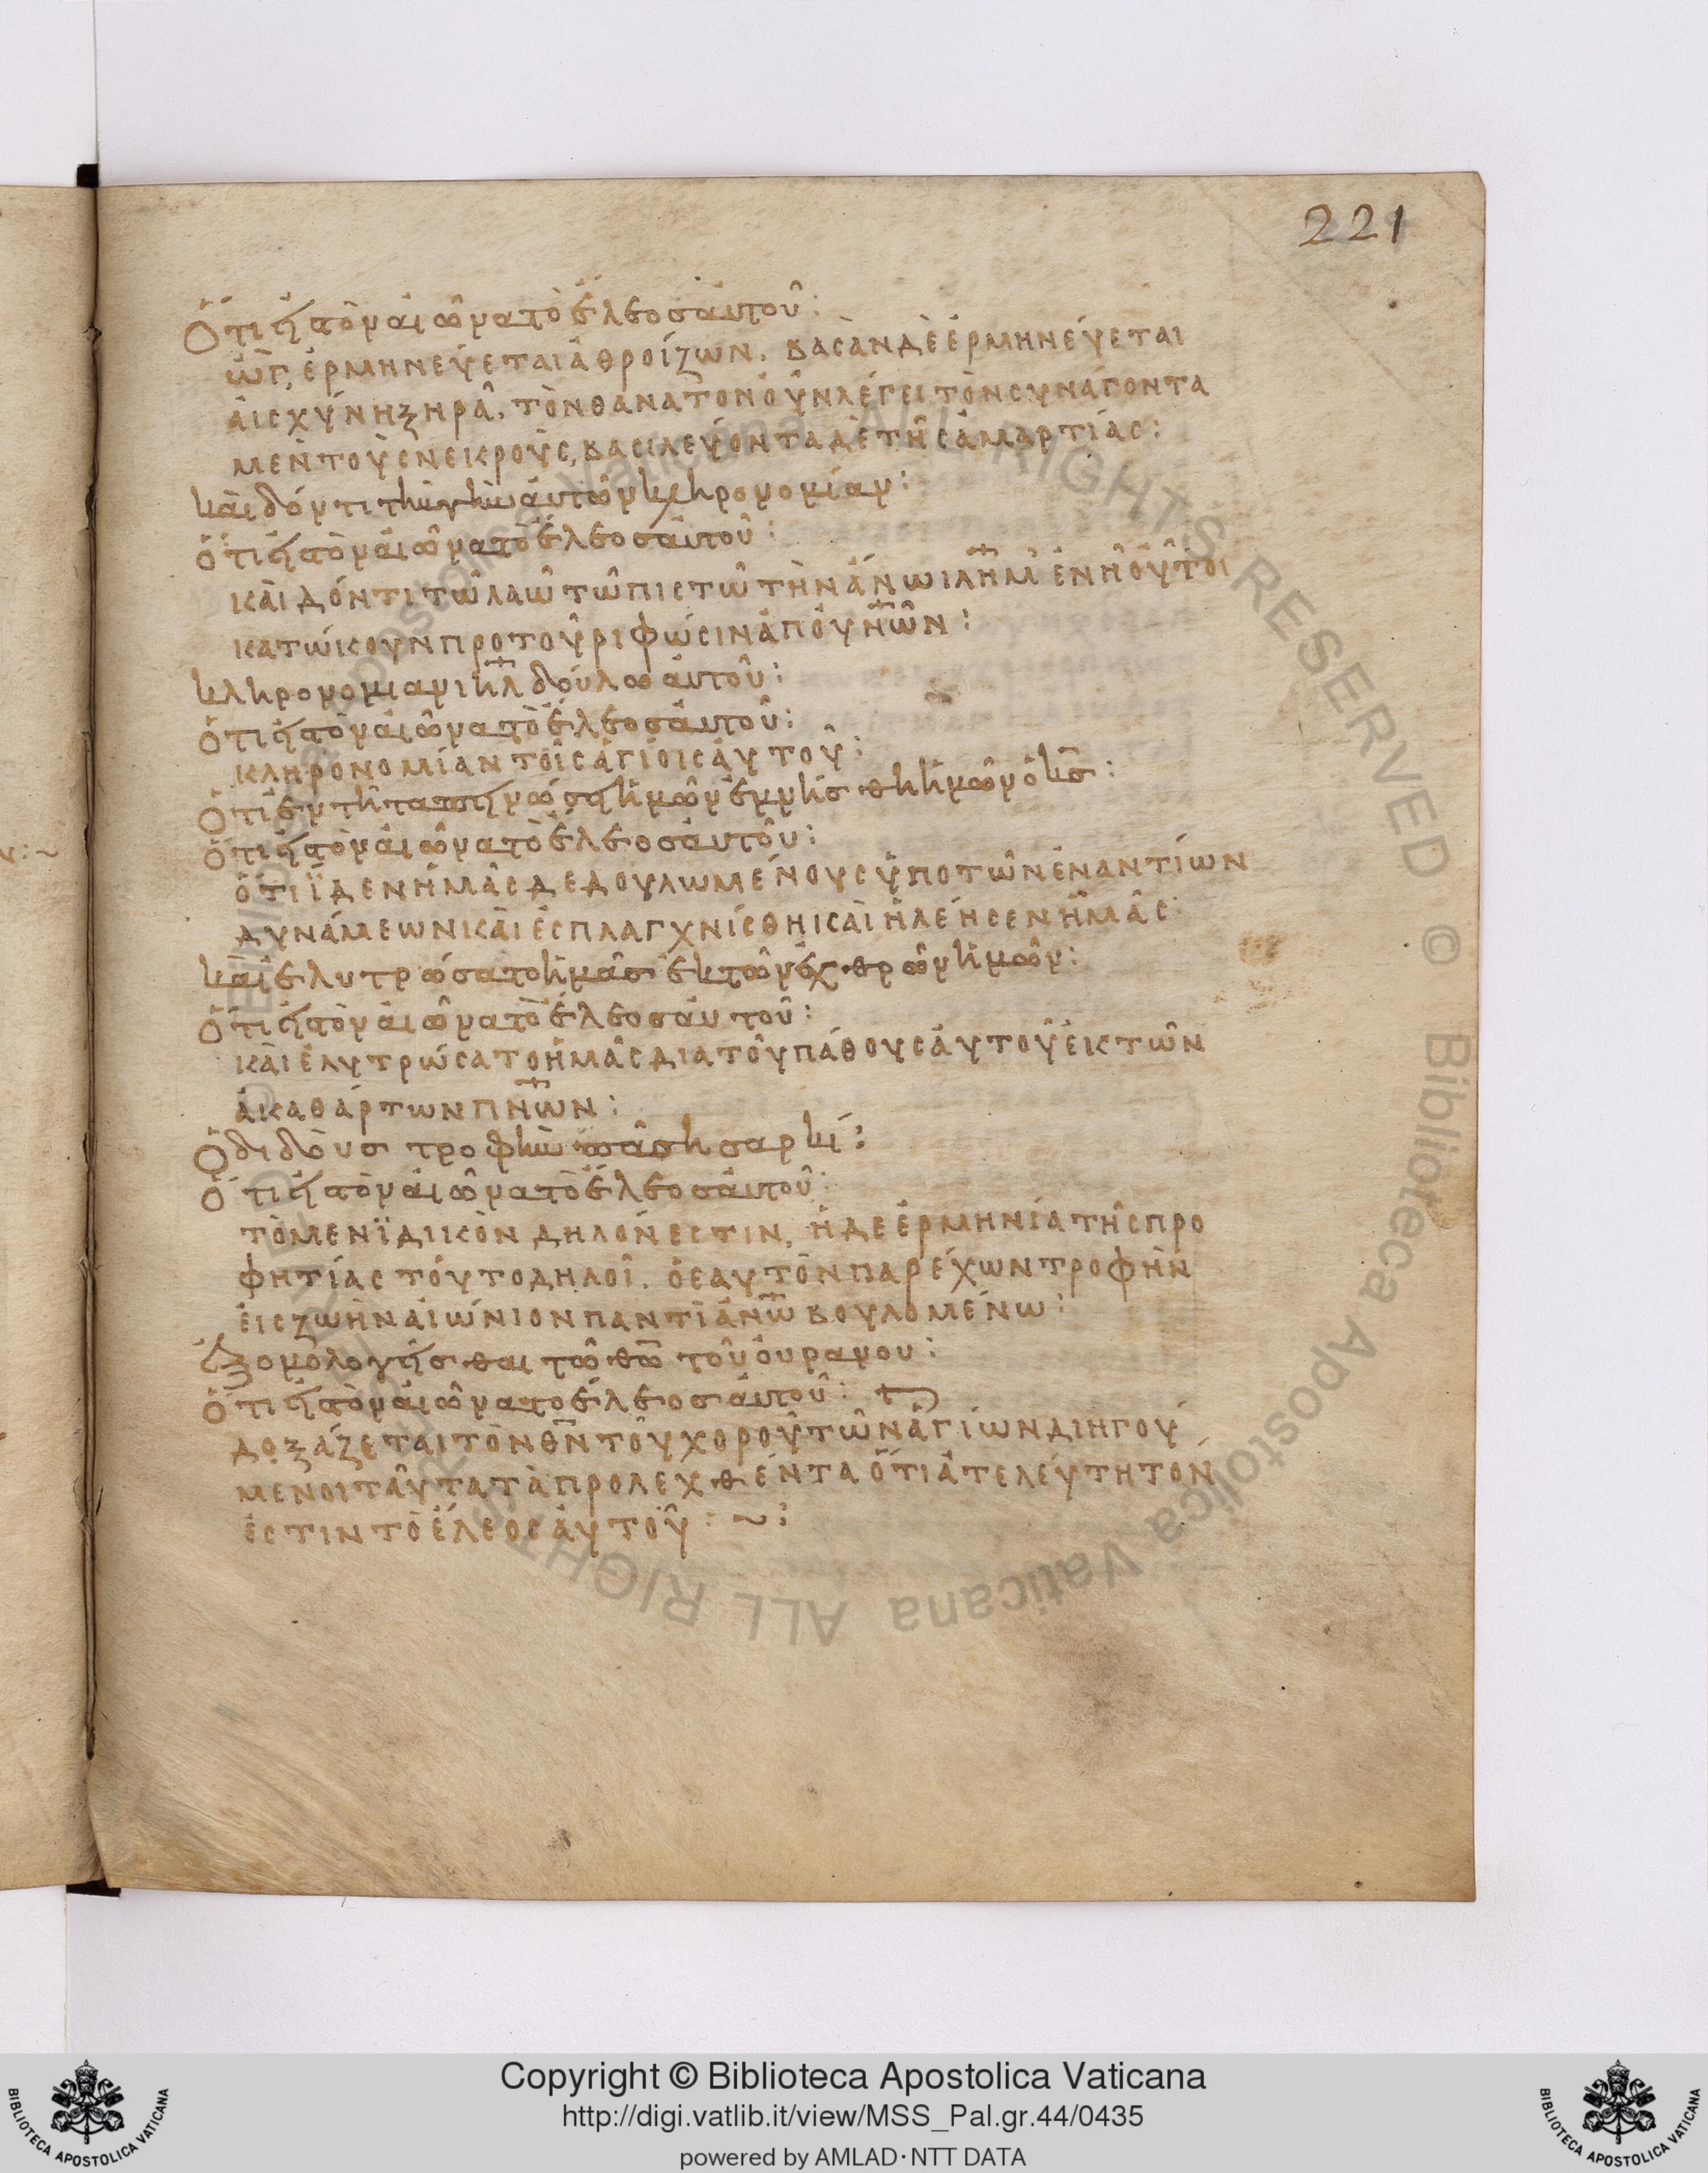 221
Ὅτι εἰς τὸν αἰῶνα τὸ ἔλεος αὐτοῦ:
ὢγ, ἑρμηνεύεται ἀθροίζων. βασὰν δὲ ἑρμηνεύεται
αἰσχύνη ξηρᾶ. τὸν θανατον οὖν λέγει τὸν συνάγοντα
μὲν τοὺς νεκροὺς, βασιλεύοντα δὲ τῆς ἁμαρτίας:
καὶ δόντι τὴν γὴν αὐτῶν κληρονομίαν:
ὅτι εἰς τὸν αἰῶνα τὸ ἔλεος αὐτοῦ:
καὶ δόντι τῶ λαῶ τῶ πιστῶ τὴν ἄνω ιλημ ἐν ἧ οὗτοι
κατώικουν προ τοῦ ριφώσιν ἀπ οὐνῶν:
κληρονομιαν ιηλ δούλω αὐτοῦ:
ὅτι εἰς τὸν αἰῶνα τὸ ἔλεος αὐτοῦ:
κληρονομίαν τοῖς ἁγίοις αὐτοῦ:
Ὅτι ἐν τῆ ταπεινώσει ἡμῶν ἐμνήσθη ἡμῶν ὁ κς:
ὅτι εἰς τὸν αἰῶνα τὸ ἔλεος αὐτοῦ:
ὅτι ἴδεν ἡμᾶς δεδουλωμένους ὑπο τῶν ἐναντίων
δυνάμεων καὶ ἐσπλαγχνίσθη καὶ ἠλέησεν ἡμᾶς
καὶ ἐλυτρώσατο ἡμᾶς ἐκ τῶν ἐχθρῶν ἡμῶν:
ὅτι εἰς τὸν αἰῶνα τὸ ἔλεος αὐτοῦ:
καὶ ἐλυτρώσατο ἡμᾶς δια τοῦ πάθους αὐτοῦ ἐκ τῶν
ἀκαθάρτων πνων:
Ὁ διδοὺς τροφὴν πάση σαρκί:
ὅτι εἰς τὸν αἰῶνα τὸ ἔλεος αὐτοῦ:
τὸ μεν ἰδικὸν δηλόν εστιν, ἡ δε ἑρμηνία τῆς προ
φητίας τοῦτο δηλοῖ. ὁ εαυτὸν παρέχων τροφὴν
εἰς ζωὴν αἰώνιον παντὶ ἀνω βουλομένω:
ἐξομολογεῖσθαι τῶ θω τοῦ οὐρανου:
ὅτι εἰς τὸν αἰῶνα το ἔλεος αὐτοῦ:
δοξάζεται τὸν θν τοῦ χοροῦ τῶν ἁγίων διηγού
μενοι ταῦτα τὰ προλεχθέντα ὅτι ἀτελεύτητόν
ἐστιν τὸ ἔλεος αὐτοῦ: ~:
Copyright © Biblioteca Apostolica Vaticana
http://digi.vatlib.it/view/MSS_Pal.gr.44/0435
powered by AMLAD·NTT DATA